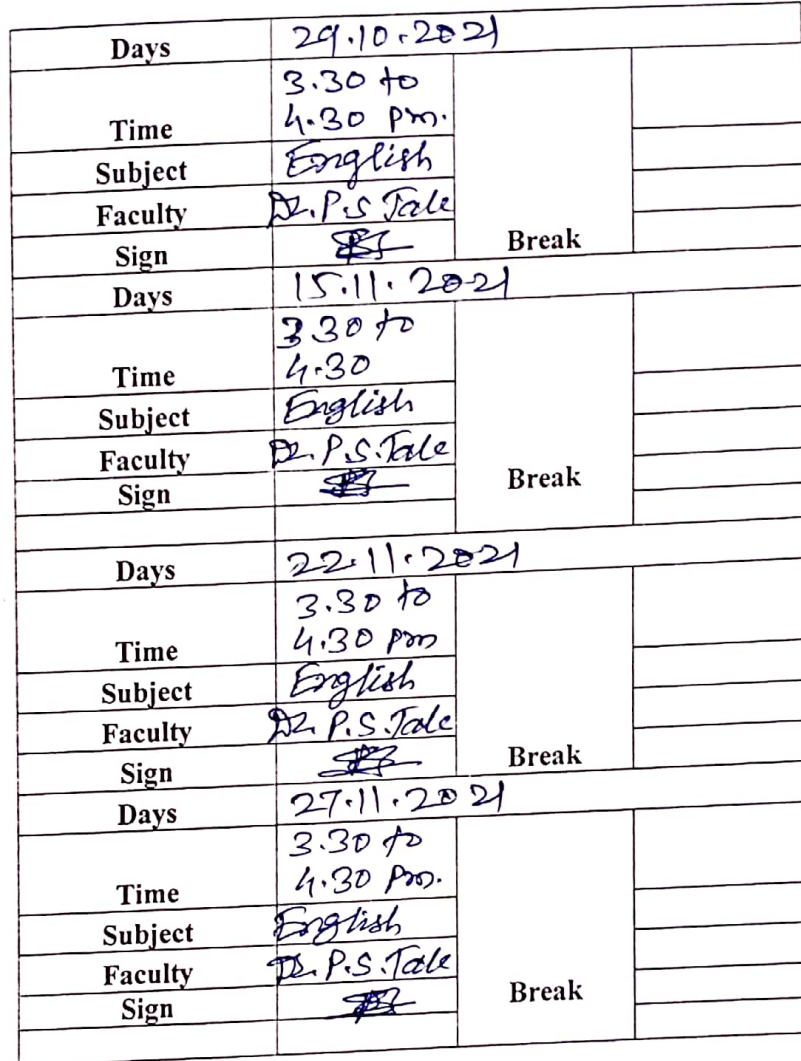 Days 29.10.2021
3.30 to
Time 4.30 pm.
Subject English
Faculty Dr. P.S Tale
Sign Break
Days 15.11.2021
3.30 to
Time 4.30
Subject English
Faculty Dr. P.S. Tale
Sign Break
Days 22.11.2021
3.30 to
Time 4.30 pm
Subject English
Faculty Dr. P.S. Tale
Sign Break
Days 27.11.2021
3.30 to
Time 4.30 Pm.
Subject English
Faculty Dr. P.S. Tale
Sign Break